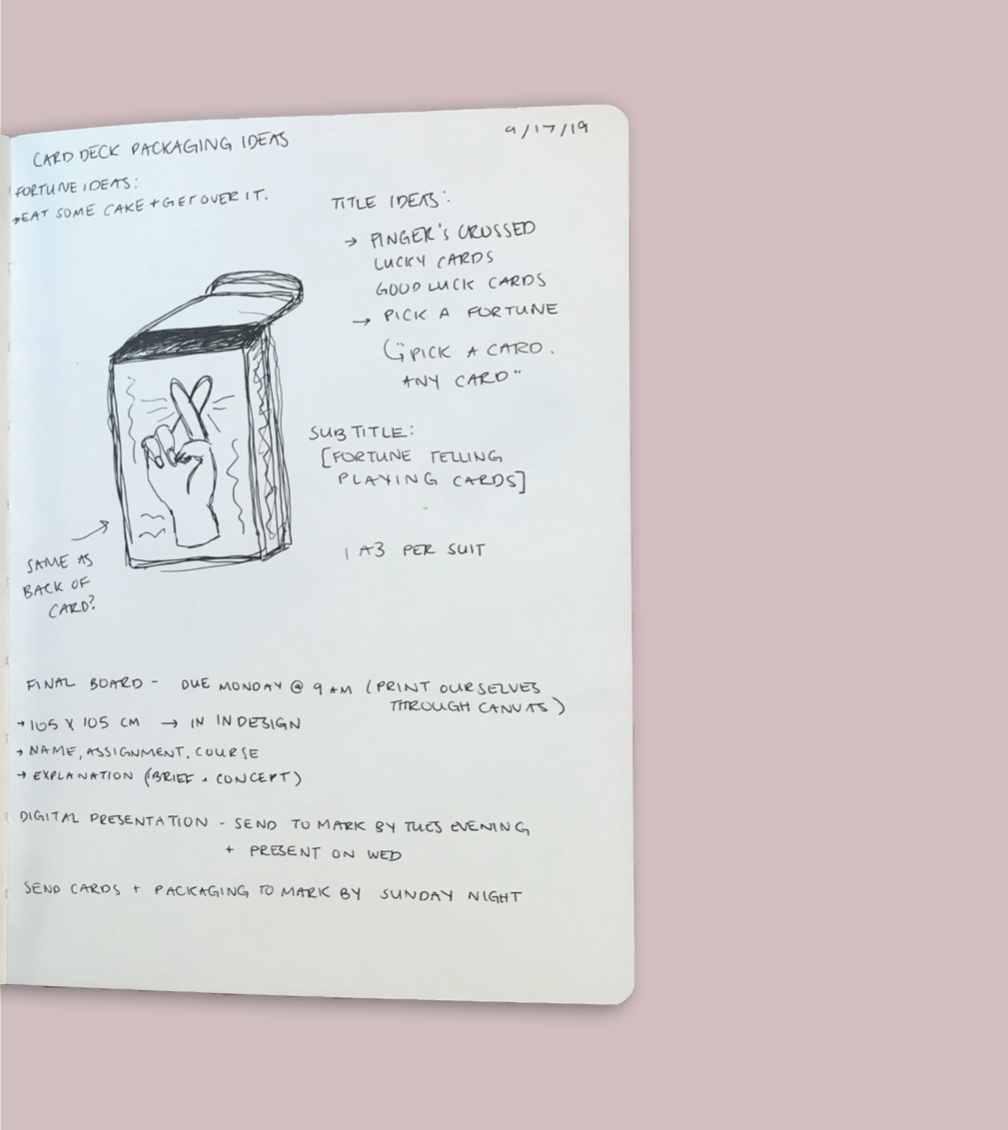 9/17/19
CARD DECK PACKAGING IDEAS
FORTUNE IDEAS:
→EAT SOME CAKE + GET OVER IT.
TITLE IDEAS:
→ FINGER'S CROSSED
LUCKY CARDS
GOOD LUCK CARDS
→ PICK A FORTUNE
"PICK A CARD.
ANY CARD"
SUBTITLE:
[FORTUNE TELLING
PLAYING CARDS]
1 A3 PER SUIT
SAME AS
BACK OF
CARD?
FINAL BOARD - DUE MONDAY @ 9 AM (PRINT OURSELVES
THROUGH CANVAS)
→ 105 X 105 CM → IN INDESIGN
→ NAME, ASSIGNMENT, COURSE
→ EXPLANATION (BRIEF + CONCEPT)
DIGITAL PRESENTATION - SEND TO MARK BY TUES EVENING
+ PRESENT ON WED
SEND CARDS + PACKAGING TO MARK BY SUNDAY NIGHT